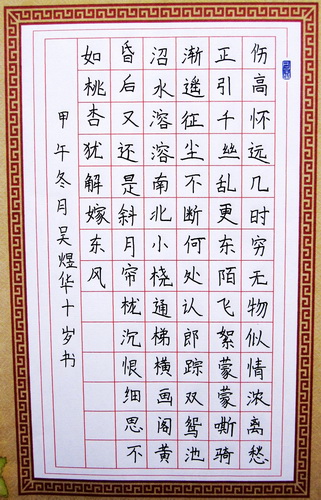 伤高怀远几时穷无物似情浓离愁
正引千丝乱更东陌飞絮蒙蒙嘶骑
渐遥征尘不断何处认郎踪双鸳池
沼水溶溶南北小桡通梯横画阁黄
昏后又还是斜月帘栊沉恨细思不
如桃杏犹解嫁东风
甲午冬月吴煜华十岁书